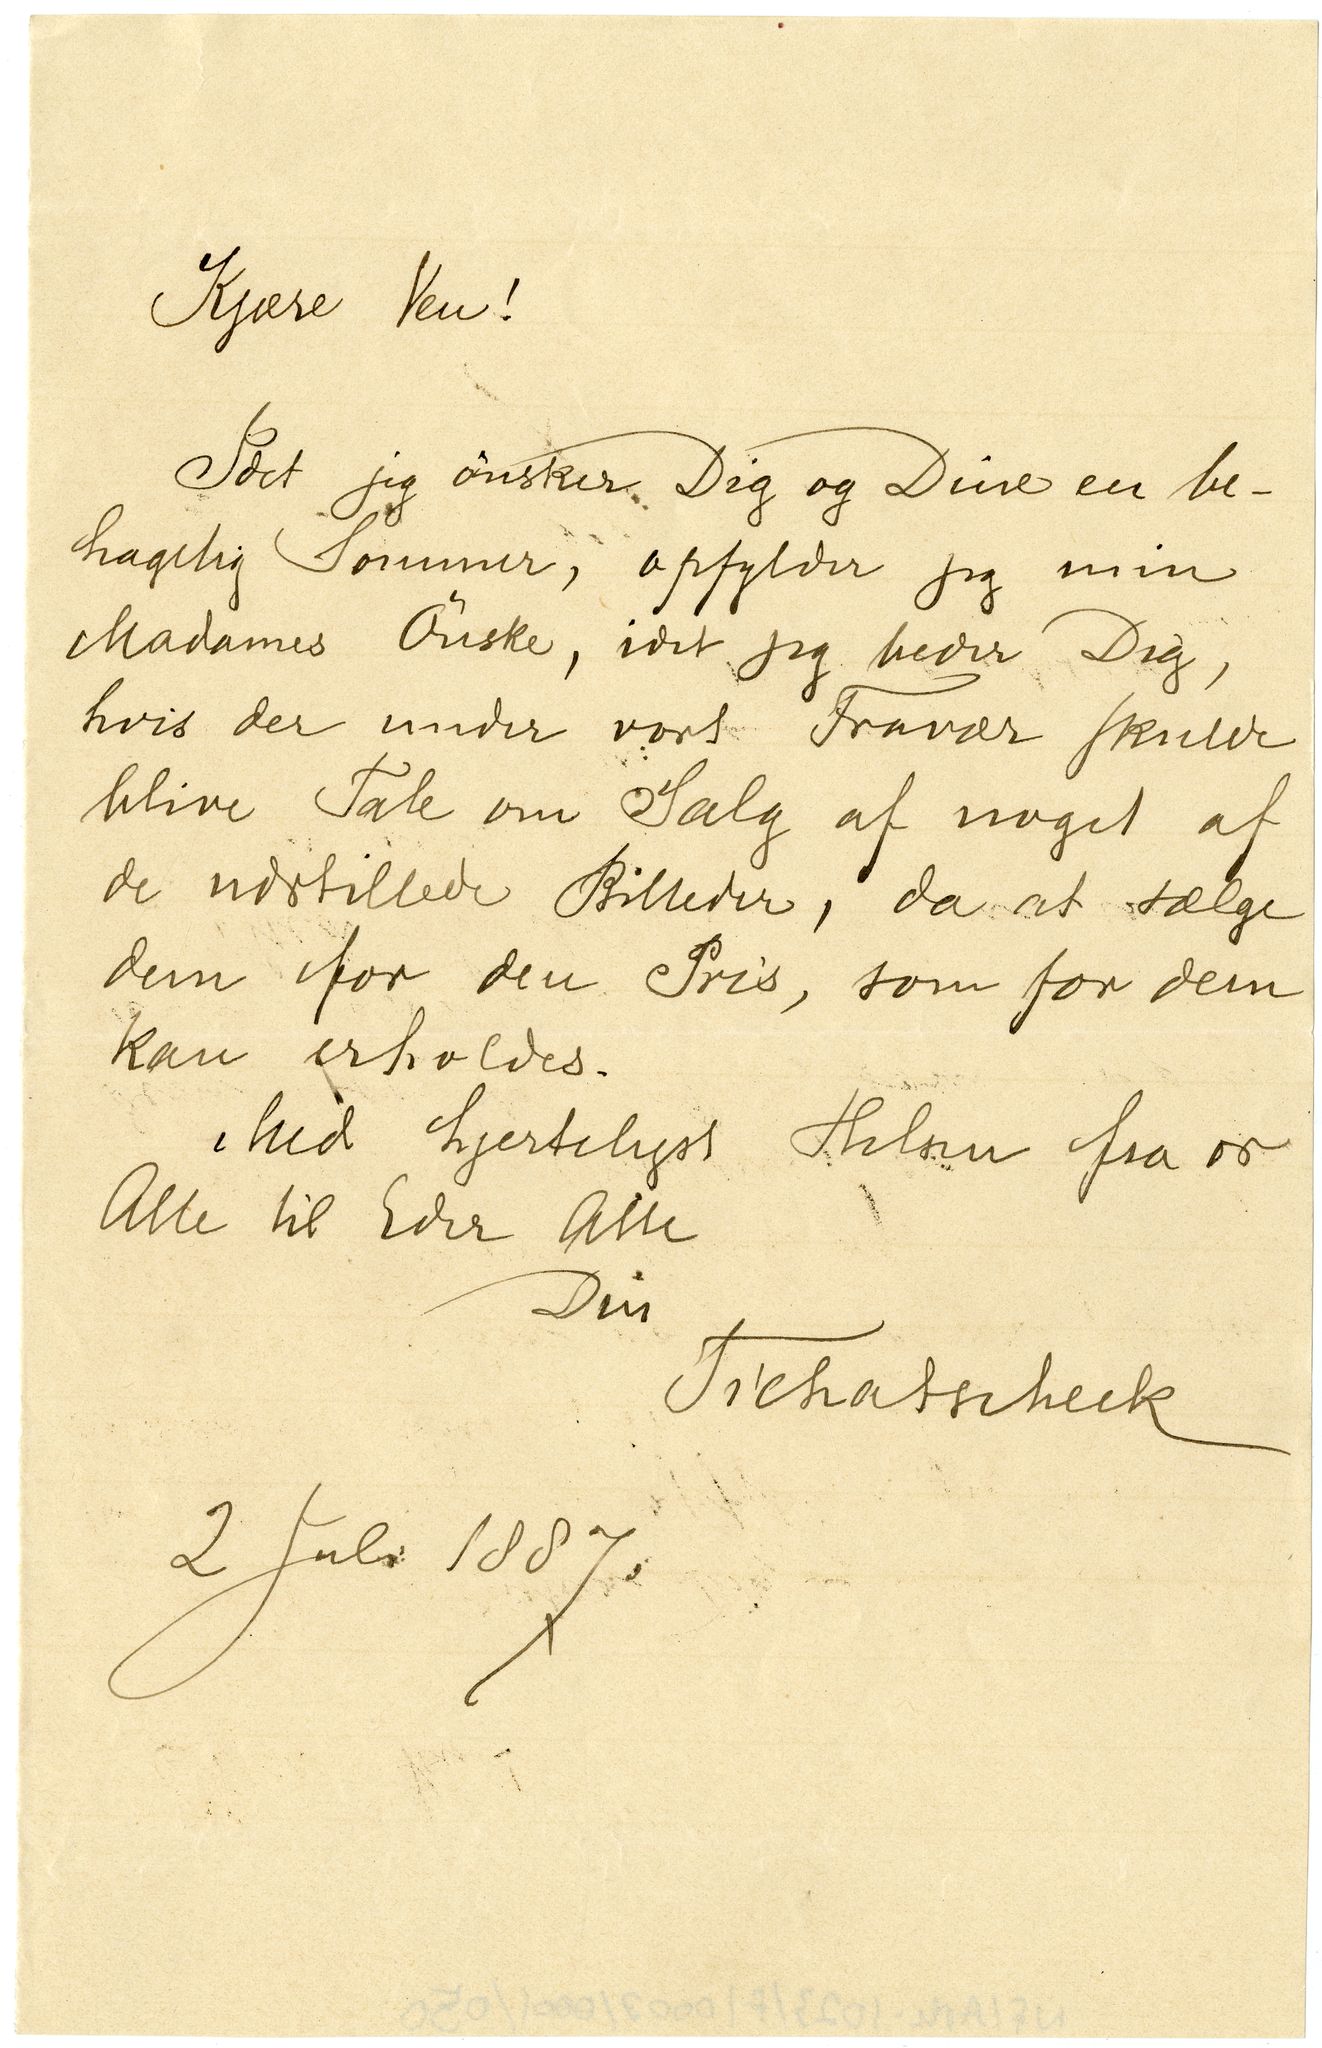 Kjære Ven!
Idet jeg önsker Dig og Dine en be-
hagelig Sommer, opfylder jeg min
Madames Önske, idet jeg beder Dig,
hvis der under vort Fravær skulde
blive Tale om Salg af noget af
de udstillede Billeder, da at sælge
dem for den Pris, som for dem
kan erholdes.
Med hjerteligst Hilsen fra os
Alle til Eder Alle
Din
Tichatscheck
2 Juli 1887.